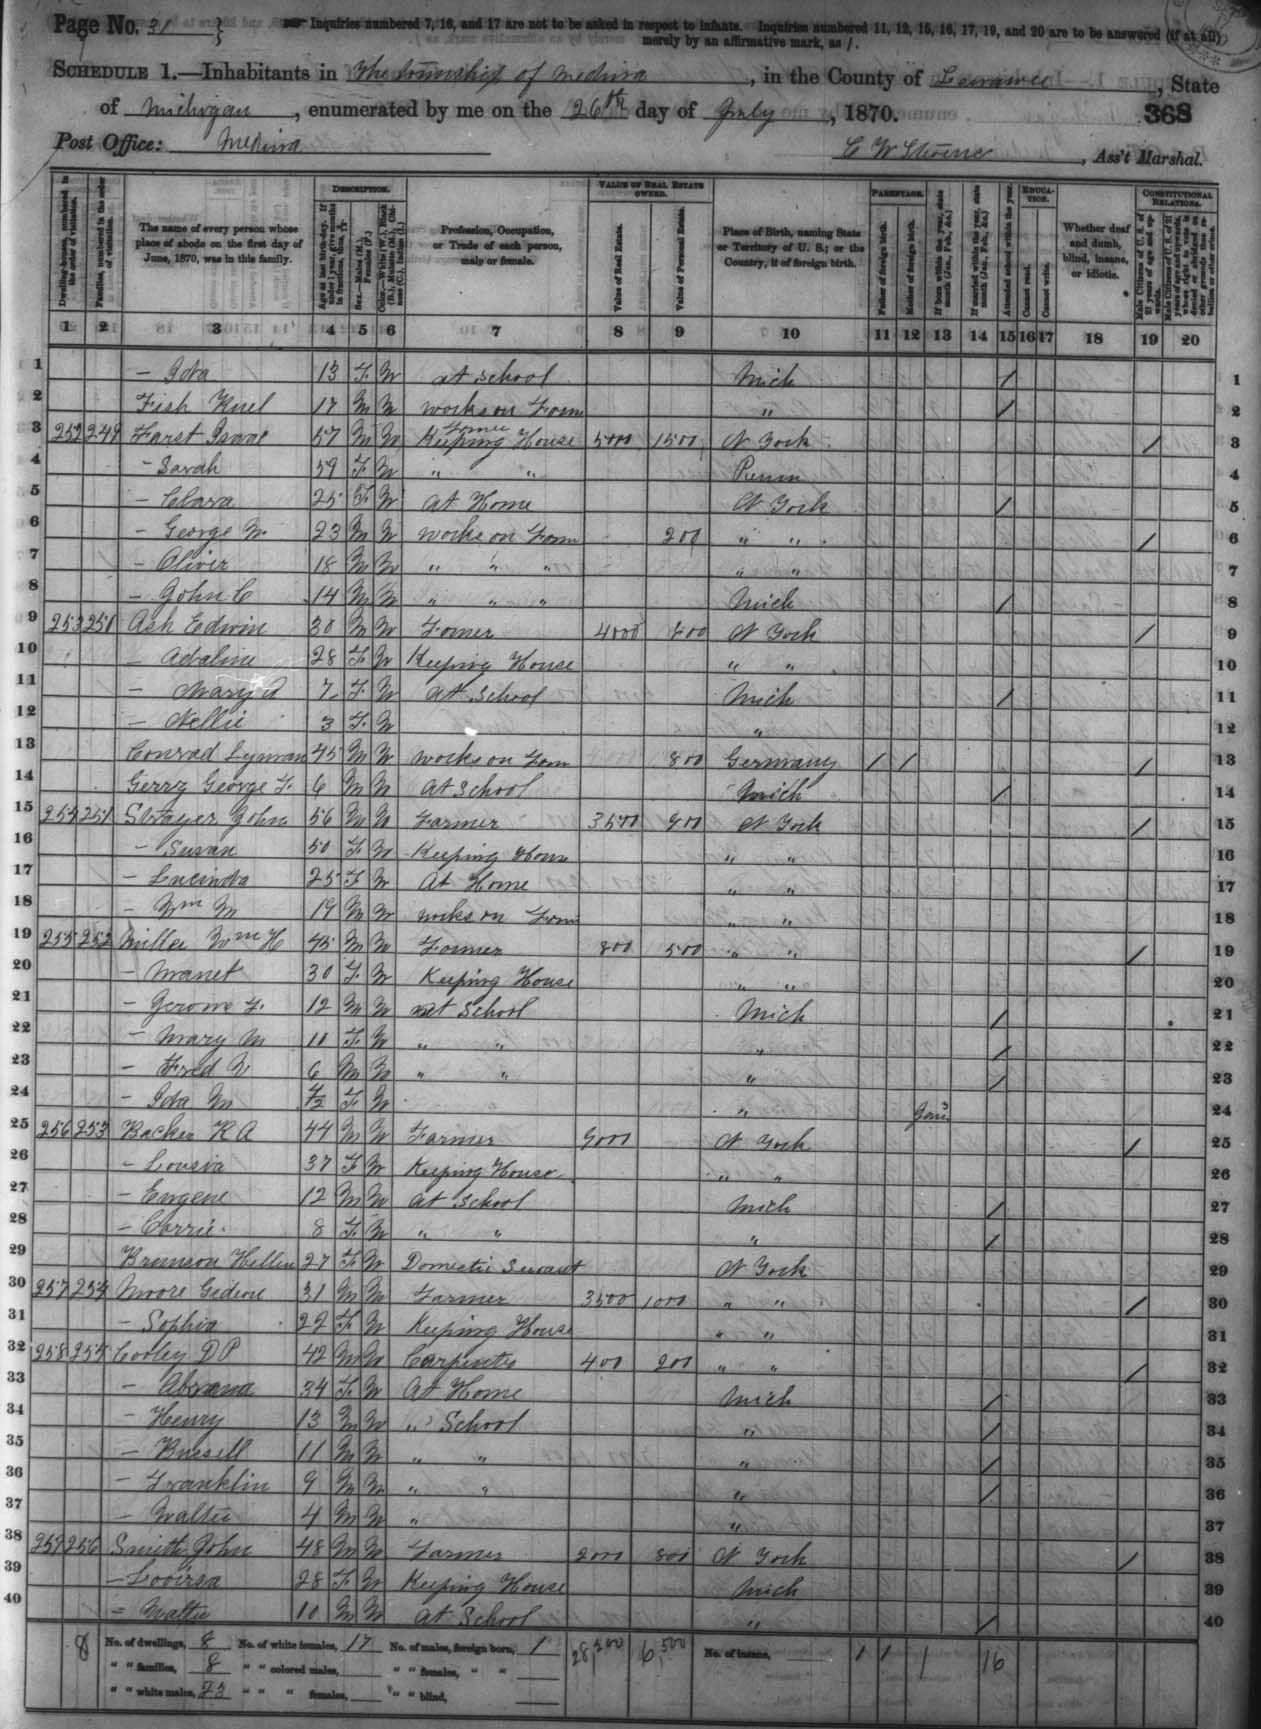 Page No. 31
Inquiries numbered 7, 16, and 17 are not to be asked in respect to infants. Inquiries numbered 11, 12, 15, 16, 17, 19, and 20 are to be answered (if at all) merely by an affirmative mark, as /.
SCHEDULE 1.—Inhabitants in The township of Medina, in the County of Lenawee, State
of Michigan, enumerated by me on the 26th day of July, 1870. 368
Post Office: Medina
C W Stone, Ass't Marshal.
Dwelling-houses, numbered in the order of visitation.
Families, numbered in the order of visitation.
The name of every person whose place of abode on the first day of June, 1870, was in this family.
DESCRIPTION.
Age at last birth-day. If under 1 year, give months in fractions, thus, 3/12
Sex.—Males (M.), Females (F.)
Color.—White (W.), Black (B.), Mulatto (M.), Chinese (C.), Indian (I.)
Profession, Occupation, or Trade of each person, male or female.
VALUE OF REAL ESTATE OWNED.
Value of Real Estate.
Value of Personal Estate.
Place of Birth, naming State or Territory of U. S.; or the Country, if of foreign birth.
PARENTAGE.
Father of foreign birth.
Mother of foreign birth.
If born within the year, state month (Jan., Feb., &c.)
If married within the year, state month (Jan., Feb., &c.)
Attended school within the year.
EDUCATION.
Cannot read.
Cannot write.
Whether deaf and dumb, blind, insane, or idiotic.
CONSTITUTIONAL RELATIONS.
Male Citizens of U. S. of 21 years of age and upwards.
Male Citizens of U. S. of 21 years of age and upwards, whose right to vote is denied or abridged on other grounds than rebellion or other crime.
1 2 3 4 5 6 7 8 9 10 11 12 13 14 15 16 17 18 19 20
1 – Ida 13 F W at School Mich / 1
2 Fish 17 M W works on Farm " / 2
3 252 249 Farst Isaac 57 M W Farmer Keeping House 5000 1500 N York / 3
4 – Sarah 59 F W " " Penn 4
5 – Clara 25 F W At Home N York / 5
6 – George W. 23 M W works on Farm 200 " " / 6
7 – Oliver 18 M W " " " " " 7
8 – John C 14 M W " " " Mich / 8
9 253 250 Ash Edwin 30 M W Farmer 4000 800 N York / 9
10 – Adaline 28 F W Keeping House " " 10
11 – Mary A 7 F W At School Mich / 11
12 – Nellie 3 F W " 12
13 Conrad Lyman 45 M W works on Farm 800 Germany / / / 13
14 Gerry George F. 6 M W At School Mich / 14
15 254 251 Strayer John 56 M W Farmer 3500 900 N York / 15
16 – Susan 50 F W Keeping House " " 16
17 – Lucinda 25 F W At Home " " 17
18 – Wm M 19 M W works on Farm " " 18
19 255 252 Miller Wm H 45 M W Farmer 800 500 " " / 19
20 – Manet 30 F W Keeping House " " 20
21 – Jerome F. 12 M W at School Mich / 21
22 – Mary M 10 F W " " " / 22
23 – Fred 6 M W " " " / 23
24 – Ida M F W " Jan 24
25 256 253 Backer R A 44 M W Farmer 9000 N York / 25
26 – Lousia 37 F W Keeping House " " 26
27 – Eugene 12 M W at School Mich / 27
28 – Carrie 8 F W " " " / 28
29 Bronson Hellen 27 F W Domestic Servant N York 29
30 257 254 Moore Gideon 31 M W Farmer 3500 1000 " " / 30
31 – Sophia 29 F W Keeping House " " 31
32 258 255 Cooley D P 42 M W Carpenter 400 200 " " / 32
33 – 34 F W At Home Mich / 33
34 – Henry 13 M W " School " / 34
35 – Russell 11 M W " " " / 35
36 – Franklin 9 M W " " " / 36
37 – Walter 4 M W " " 37
38 259 256 Smith John 48 M W Farmer 2000 800 N York / 38
39 – Lovirsa 28 F W Keeping House Mich 39
40 – Walter 10 M W At School " / 40
8 No. of dwellings, 8 No. of white females, 17 No. of males, foreign born, 1 28,200 6,500 No. of insane, 1 1 1 16
" " families, 8 " " colored males, " " females, " "
" " white males, 23 " " " females, " " blind,